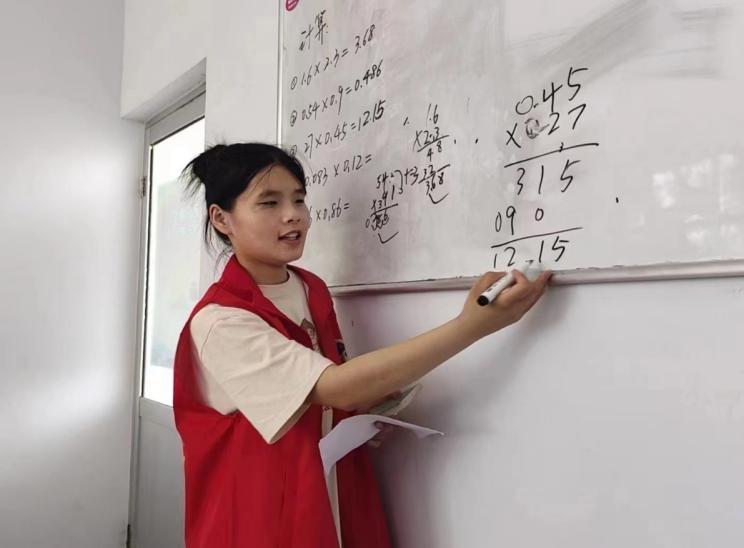 计算
① 1.6×2.3=3.68
② 0.54×0.9=0.486
27×0.45=12.15
0.083×0.12=
×0.86=
1.6
×2.3
48
3.68
0.45
27
315
090
12.15